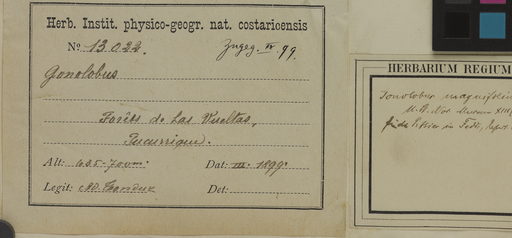 Herb. Instit. physico-geogr. nat. costaricensis
№ 13.022. Zugeg. IV. 99.
Gonolobus
Forêts de Las Vueltas,
Tucurrique.
Alt: 635-700m. Dat: III. 1899.
Legit: Ad. Tonduz Det:
HERBARIUM REGIUM
Gonolobus
in